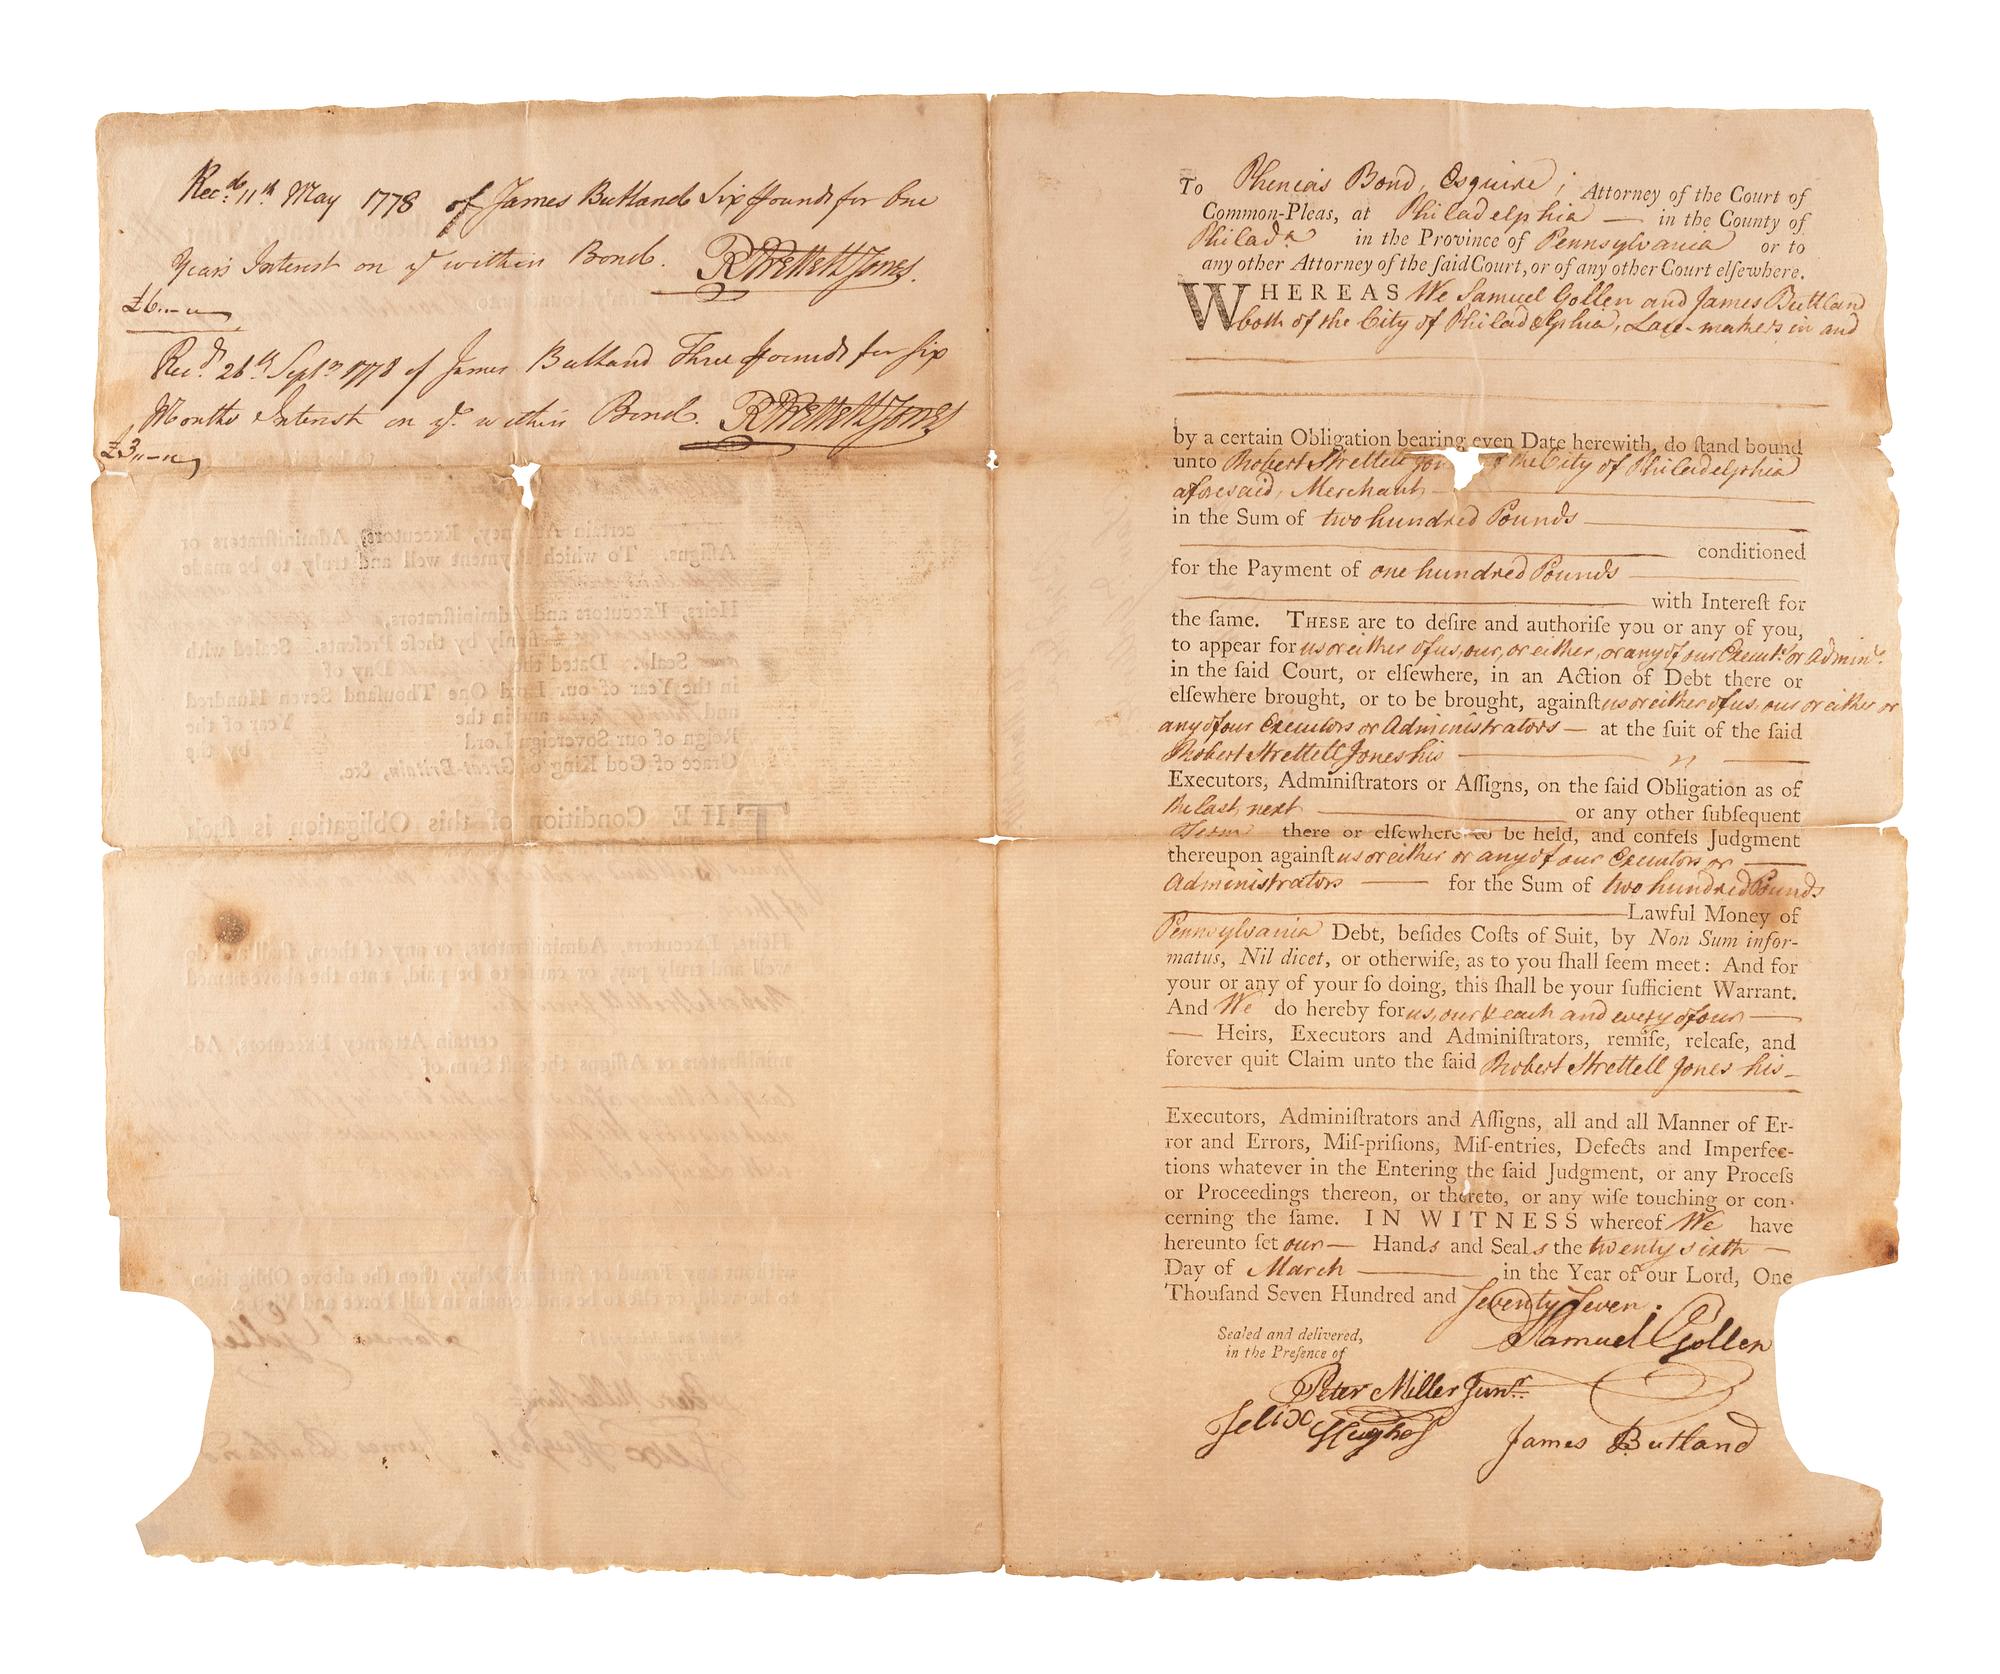 Recd. 11th May 1778 of James Butland Six Pounds for One
Years Interest on ye within Bond. RStrettell Jones.
£6 „ – „
Recd. 26th Septr 1778 of James Butland Three Pounds for Six
Months Interest on ye within Bond. RStrettell Jones
£3 „ – „
To Phineas Bond, Esquire; Attorney of the Court of
Common-Pleas, at Philadelphia — in the County of
Philada in the Province of Pennsylvania or to
any other Attorney of the ſaid Court, or of any other Court elſewhere.
WHEREAS We Samuel Gollen and James Buttland
both of the City of Philadelphia, Lace-makers in and
by a certain Obligation bearing even Date herewith, do ſtand bound
unto Robert Strettell Jones of the City of Philadelphia
aforesaid, Merchant
in the Sum of two hundred Pounds
conditioned
for the Payment of one hundred Pounds
with Intereſt for
the ſame. THESE are to deſire and authoriſe you or any of you,
to appear for us or either of us, our, or either, or any of our Execut.s or Admin.s
in the ſaid Court, or elſewhere, in an Action of Debt there or
elſewhere brought, or to be brought, againſt us or either of us, our or either or
any of our Executors or Administrators — at the ſuit of the ſaid
Robert Strettell Jones his
Executors, Adminiſtrators or Aſſigns, on the ſaid Obligation as of
the last, next or any other ſubſequent
Term there or elſewhere to be held, and confeſs Judgment
thereupon againſt us or either or any of our Executors or
Administrators — for the Sum of two hundred Pounds
Lawful Money of
Pennsylvania Debt, beſides Coſts of Suit, by Non Sum infor-
matus, Nil dicet, or otherwiſe, as to you ſhall ſeem meet: And for
your or any of your ſo doing, this ſhall be your ſufficient Warrant.
And We do hereby for us, our & each and every of our —
— Heirs, Executors and Adminiſtrators, remiſe, releaſe, and
forever quit Claim unto the ſaid Robert Strettell Jones his
Executors, Adminiſtrators and Aſſigns, all and all Manner of Er-
ror and Errors, Miſ-priſions, Miſ-entries, Defects and Imperfec-
tions whatever in the Entering the ſaid Judgment, or any Proceſs
or Proceedings thereon, or thereto, or any wiſe touching or con-
cerning the ſame. IN WITNESS whereof We have
hereunto ſet our — Hands and Seals the twenty sixth —
Day of March — in the Year of our Lord, One
Thouſand Seven Hundred and Seventy Seven.
Sealed and delivered,
in the Preſence of
Samuel Gollen
Peter Miller Junr.
Felix Hughes
James Butland